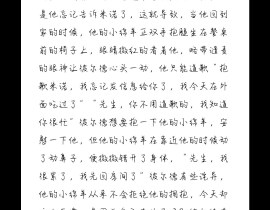 是他忘记告诉米诺了，这就导致，当他回到
家的时候，他的小绵羊正双手抱腿坐在餐桌
前的椅子上，眼睛微红的看着他，略带谴责
的眼神让彼尔德心头一动，他只能道歉"抱
歉米诺，我忘记发信息给你了，我今天在外
面吃过了""先生，你不用道歉的，我知道
你很忙"彼尔德想要抱一下他的小绵羊，安
慰一下他，但他的小绵羊在靠近他的时候动
了动鼻子，便微微错开了身体，"先生，我
很累了，我先回房间了"彼尔德有些诧异，
他的小绵羊从来不会拒绝他的拥抱，今天却